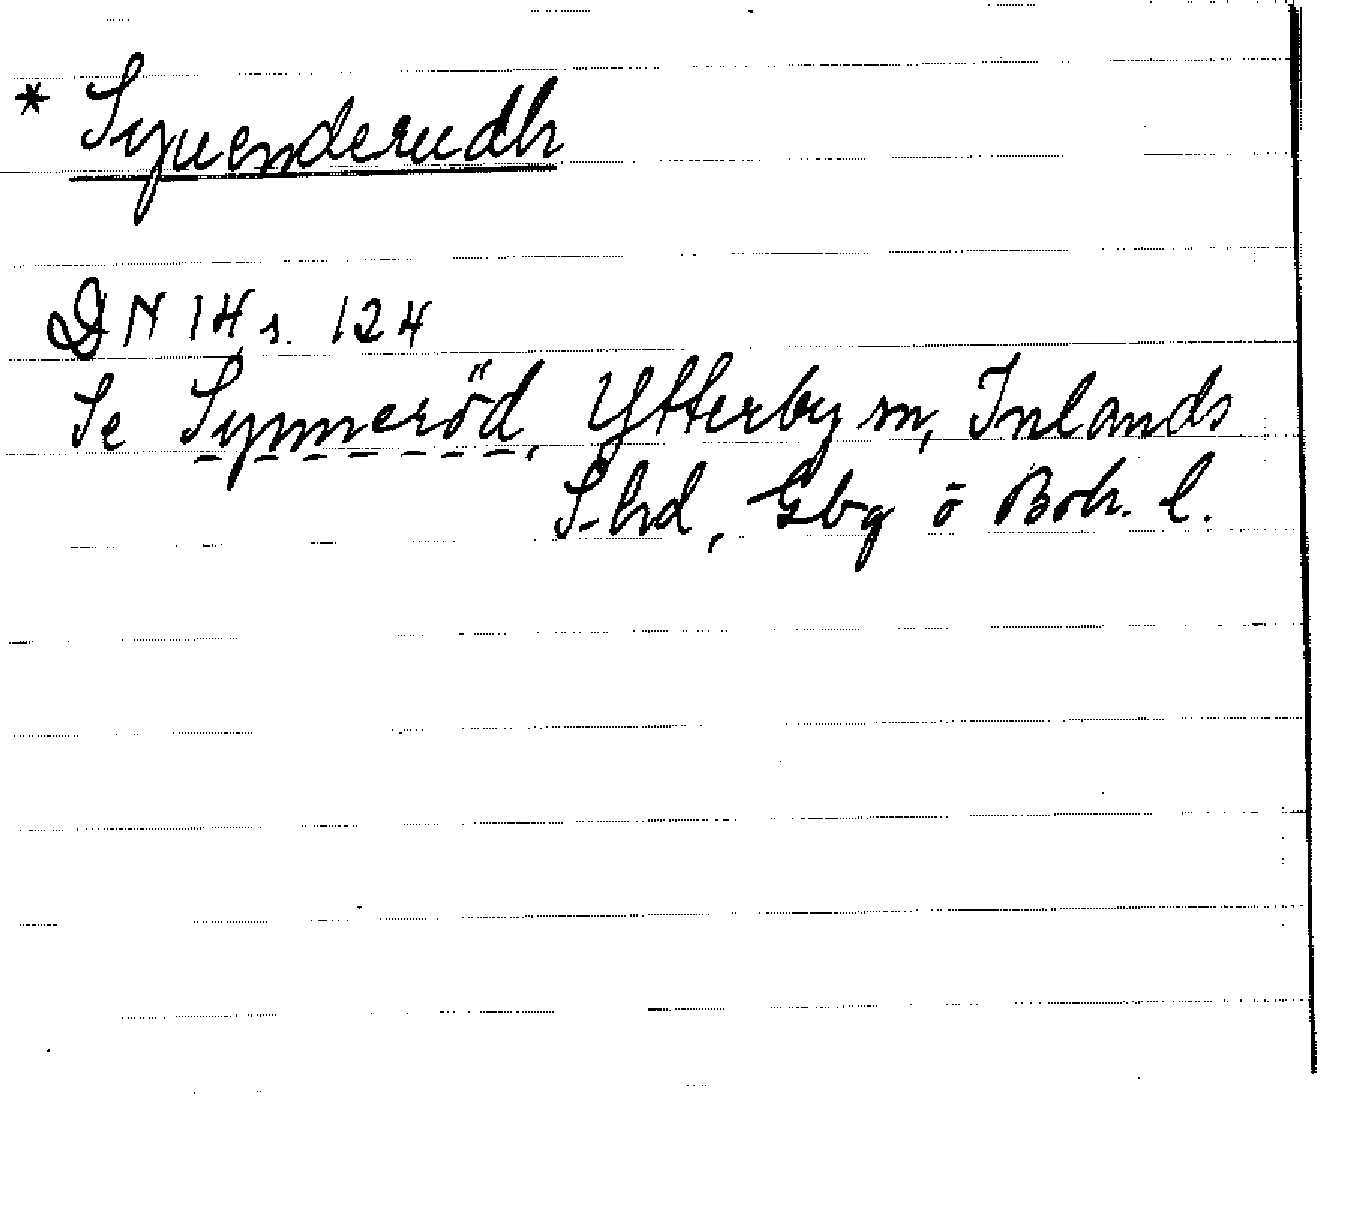 * Syuenderudh
DN 14 s. 124
Se Synneröd, Ytterby sn, Inlands
S. hd, Gbg o Boh. l.